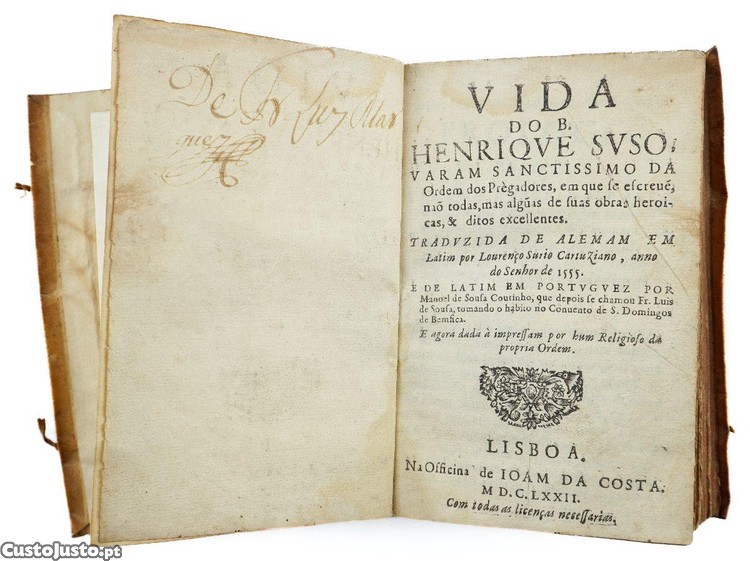 De Fr Luiz Mar
quez
VIDA
DO B.
HENRIQVE SVSO,
VARAM SANCTISSIMO DA
Ordem dos Prègadores, em que se escreuẽ,
naõ todas, mas algũas de suas obras heroi-
cas, & ditos excellentes.
TRADVZIDA DE ALEMAM EM
Latim por Lourenço Surio Cartuziano, anno
do Senhor de 1555.
E DE LATIM EM PORTVGVEZ POR
Manoel de Sousa Coutinho, que depois se chamou Fr. Luis
de Sousa, tomando o habito no Conuento de S. Domingos
de Bemfica.
E agora dada à impressam por hum Religioso da
propria Ordem.
LISBOA.
Na Officina de IOAM DA COSTA.
M D. C. LXXII.
Com todas as licenças necessarias.
CustoJusto.pt